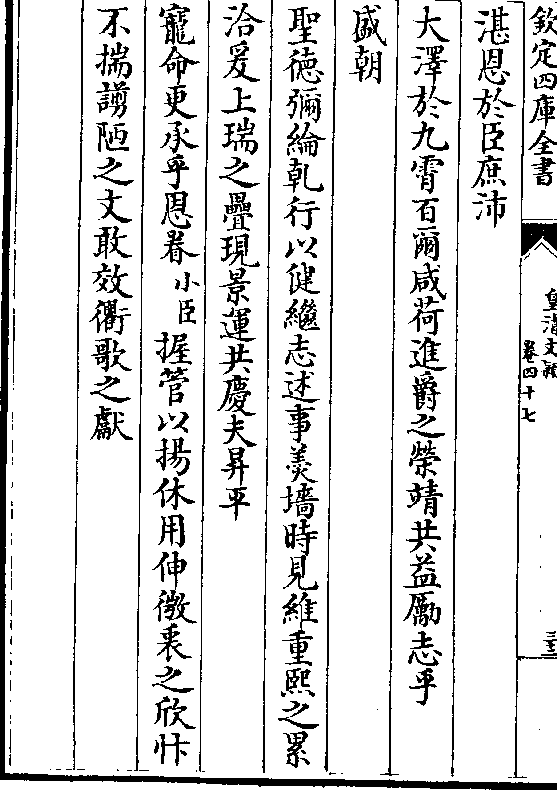 欽定四庫全書
皇清文頴
卷四十七
三三
湛恩於臣庶沛
大澤於九霄百爾咸荷進爵之榮靖共益勵志乎
盛朝
聖德彌綸乹行以健繼志述事羮墻時見維重熙之累
洽爰上瑞之疊現景運共慶夫昇平
寵命更承乎恩眷小臣握管以揚休用伸微衷之欣忭
不揣謭陋之文敢效衢歌之獻